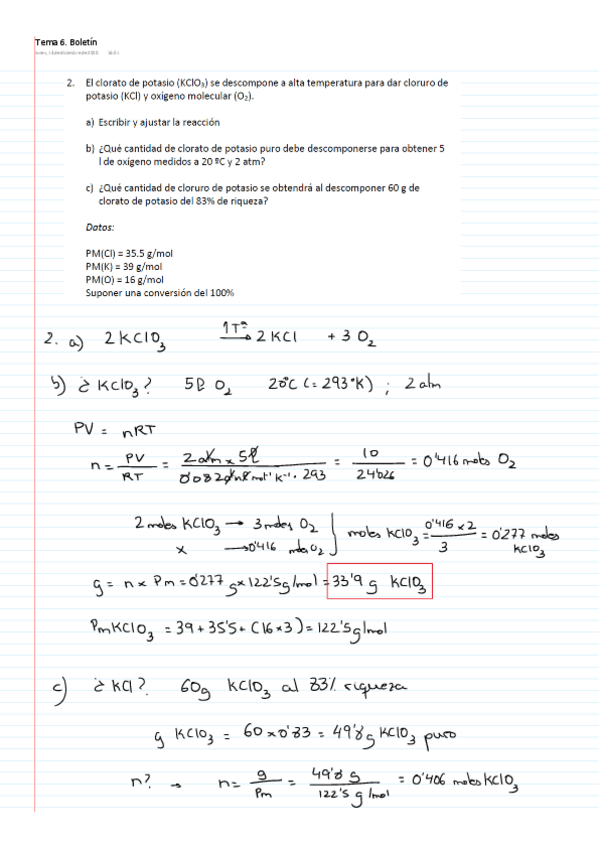 Tema 6. Boletín
2. El clorato de potasio (KClO₃) se descompone a alta temperatura para dar cloruro de
potasio (KCl) y oxígeno molecular (O₂).
a) Escribir y ajustar la reacción
b) ¿Qué cantidad de clorato de potasio puro debe descomponerse para obtener 5
l de oxígeno medidos a 20 ºC y 2 atm?
c) ¿Qué cantidad de cloruro de potasio se obtendrá al descomponer 60 g de
clorato de potasio del 83% de riqueza?
Datos:
PM(Cl) = 35.5 g/mol
PM(K) = 39 g/mol
PM(O) = 16 g/mol
Suponer una conversión del 100%
2. a) 2 KClO₃ ↑Tª → 2 KCl + 3 O₂
b) ¿ KClO₃? 5 l O₂ 20°C (= 293°K) ; 2 atm
PV = nRT
n = PV/RT = 2 atm x 5l / 0'082 atm l mol⁻¹ K⁻¹ · 293 = 10/24'026 = 0'416 moles O₂
2 moles KClO₃ → 3 moles O₂
x → 0'416 moles O₂ } moles KClO₃ = 0'416 x 2 / 3 = 0'277 moles KClO₃
g = n x Pm = 0'277 g x 122'5 g/mol = 33'9 g KClO₃
Pm KClO₃ = 39 + 35'5 + (16 x 3) = 122'5 g/mol
c) ¿ KCl? 60g KClO₃ al 83% riqueza
g KClO₃ = 60 x 0'83 = 49'8 g KClO₃ puro
n? → n = g/Pm = 49'8 g / 122'5 g/mol = 0'406 moles KClO₃